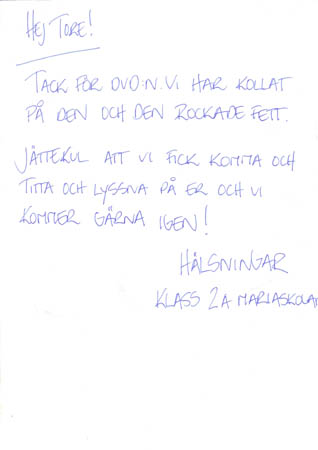 HEJ TORE!
TACK FÖR DVD:N. VI HAR KOLLAT
PÅ DEN OCH DEN ROCKADE FETT.
JÄTTEKUL ATT VI FICK KOMMA OCH
TITTA OCH LYSSNA PÅ ER OCH VI
KOMMER GÄRNA IGEN!
HÄLSNINGAR
KLASS 2A MARIASKOLAN